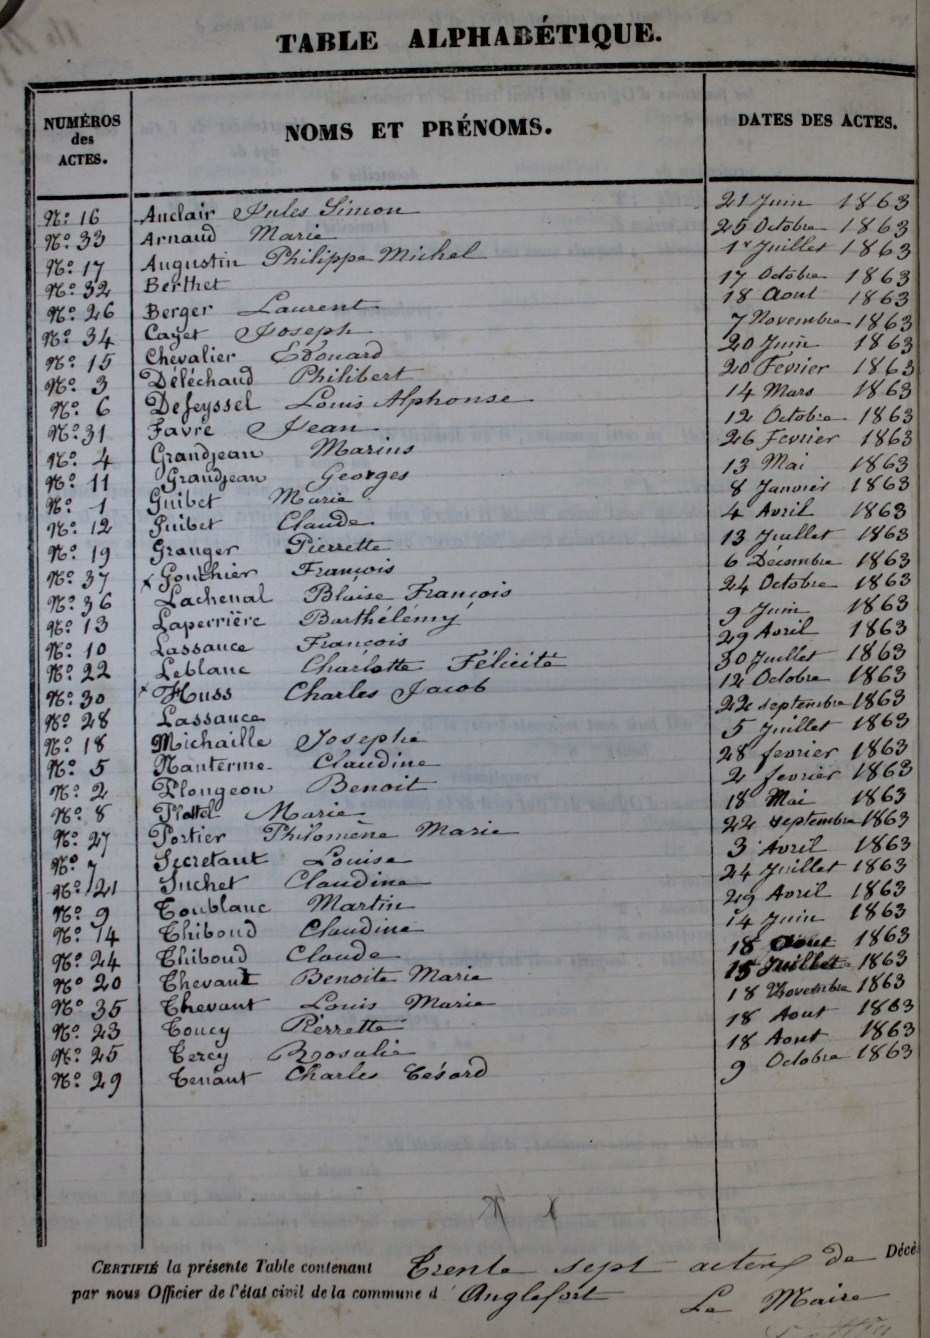 TABLE ALPHABÉTIQUE.
NUMÉROS des ACTES. NOMS ET PRÉNOMS. DATES DES ACTES.
N.º 16 Auclair Jules Simon 21 Juin 1863
N.º 33 Arnaud Marie 25 Octobre 1863
N.º 17 Augustin Philippe Michel 1r Juillet 1863
N.º 32 Berthet 17 Octobre 1863
N.º 26 Berger Laurent 18 Aout 1863
N.º 34 Cayet Joseph 7 Novembre 1863
N.º 15 Chevalier Edouard 20 Juin 1863
N.º 3 Déléchaud Philibert 20 Février 1863
N.º 6 Defeyssel Louis Alphonse 14 Mars 1863
N.º 31 Favre Jean 12 Octobre 1863
N.º 4 Grandjean Marins 26 Fevrier 1863
N.º 11 Grandjean Georges 13 Mai 1863
N.º 1 Guibet Marie 8 Janvier 1863
N.º 12 Guibet Claude 4 Avril 1863
N.º 19 Granger Pierrette 13 Juillet 1863
N.º 37 x Gouthier François 6 Décembre 1863
N.º 36 Lachenal Blaise François 24 Octobre 1863
N.º 13 Laperrière Barthélémy 9 Juin 1863
N.º 10 Lassauce François 29 Avril 1863
N.º 22 Leblanc Charlotte Félicité 30 Juillet 1863
N.º 30 x Huss Charles Jacob 12 Octobre 1863
N.º 28 Lassauce 22 septembre 1863
N.º 18 Michaille Josephe 5 Juillet 1863
N.º 5 Nanterme Claudine 28 fevrier 1863
N.º 2 Plongeon Benoit 2 fevrier 1863
N.º 8 Plottel Marie 18 Mai 1863
N.º 27 Portier Philomène Marie 22 septembre 1863
N.º 7 Secretant Louise 3 Avril 1863
N.º 21 Suchet Claudine 24 Juillet 1863
N.º 9 Toublanc Martin 29 Avril 1863
N.º 14 Thiboud Claudine 14 Juin 1863
N.º 24 Thiboud Claude 18 Aout 1863
N.º 20 Thevant Benoite Marie 15 Juillet 1863
N.º 35 Thevant Louis Marie 18 Novembre 1863
N.º 23 Toucy Pierrette 18 Aout 1863
N.º 25 Tercy Rosalie 18 Aout 1863
N.º 29 Tenant Charles Césard 9 Octobre 1863
x x
CERTIFIÉ la présente Table contenant Trente sept actes de Décè
par nous Officier de l'état civil de la commune d'Anglefort Le Maire